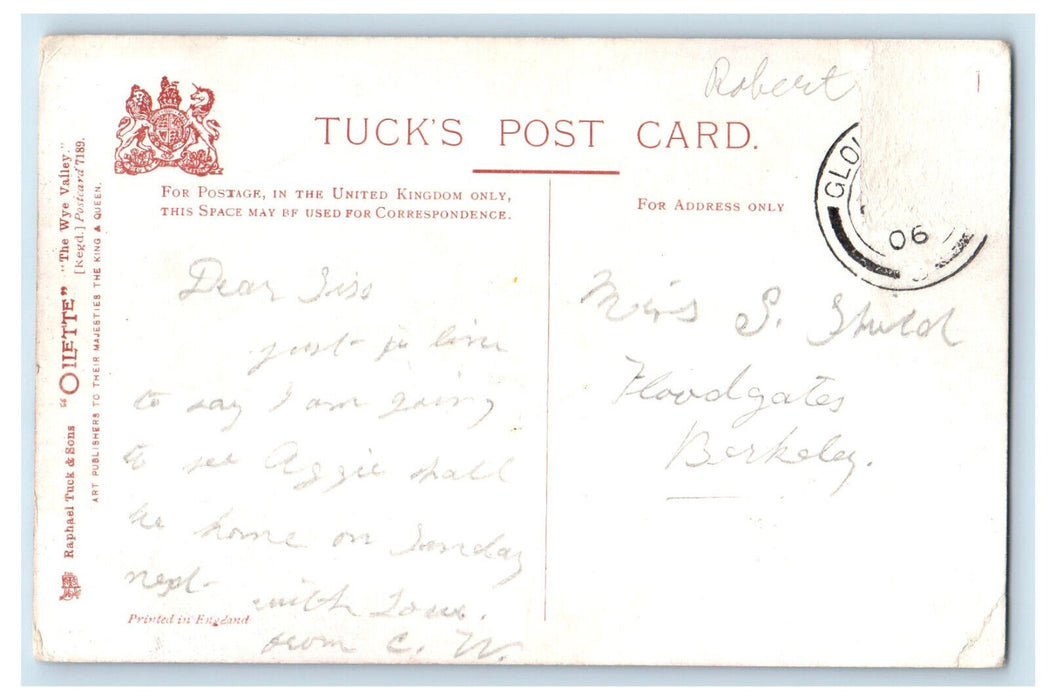 Robert
TUCK'S POST CARD.
FOR POSTAGE, IN THE UNITED KINGDOM ONLY,
THIS SPACE MAY BE USED FOR CORRESPONDENCE.
FOR ADDRESS ONLY
GLO
06
Dear Siss
just a line
to say I am going
to see Aggie shall
be home on Sunday
next
with Love.
from C. W.
Miss S. Shield
Floodgates
Berkeley.
Printed in England
Raphael Tuck & Sons "OILETTE" "The Wye Valley."
[Regd.] Postcard 7189.
ART PUBLISHERS TO THEIR MAJESTIES THE KING & QUEEN.